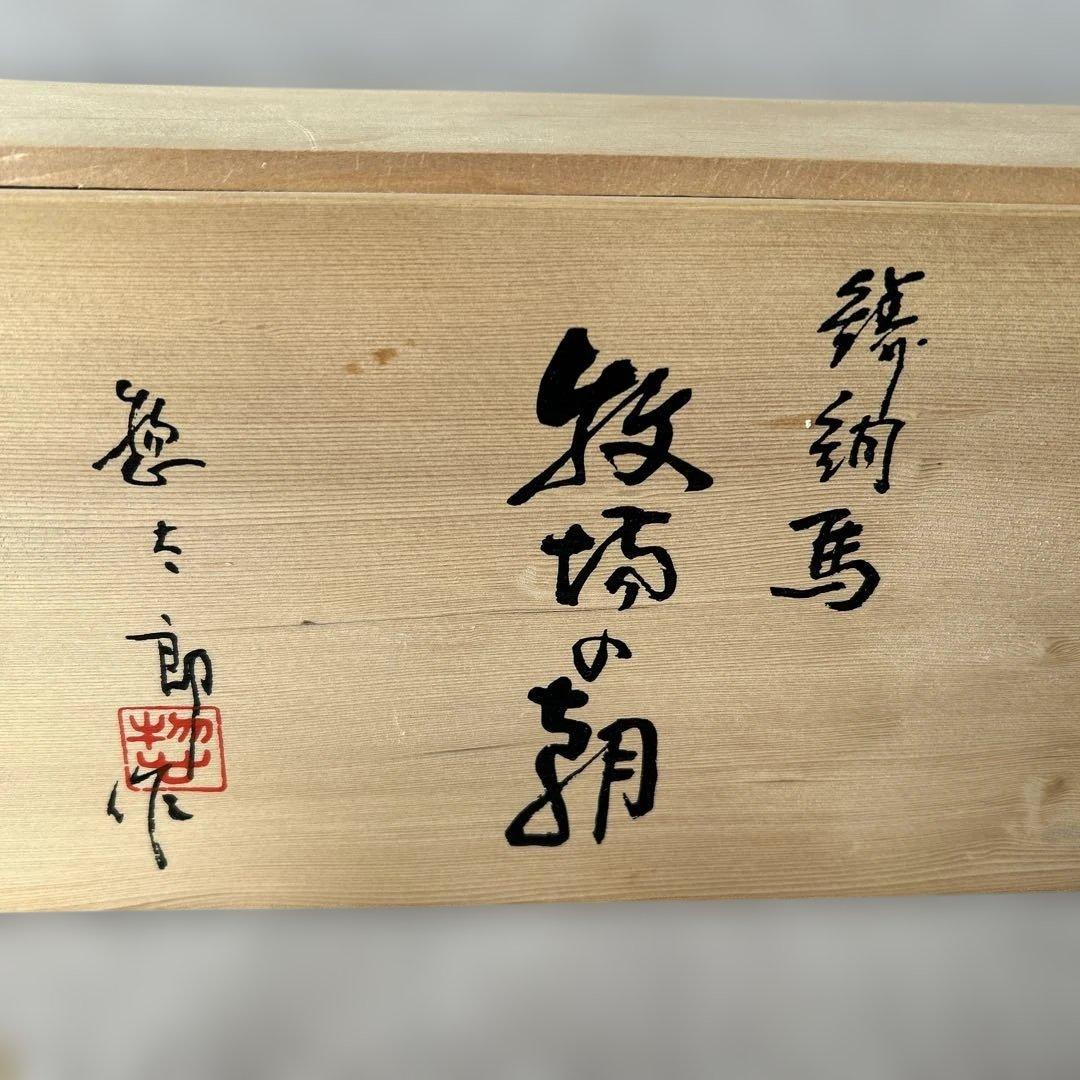 鋳銅馬
牧場の朝
惣太郎作
惣